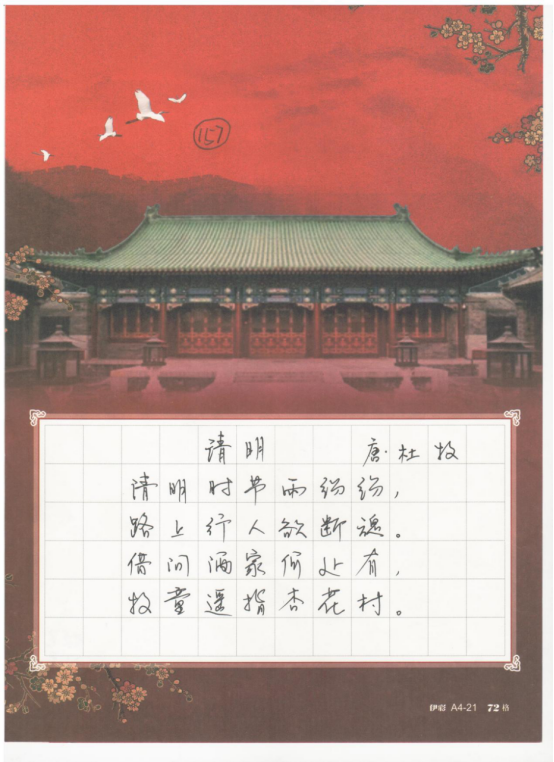 157
清明 唐·杜牧
清明时节雨纷纷,
路上行人欲断魂。
借问酒家何处有,
牧童遥指杏花村。
伊彩 A4-21 72格